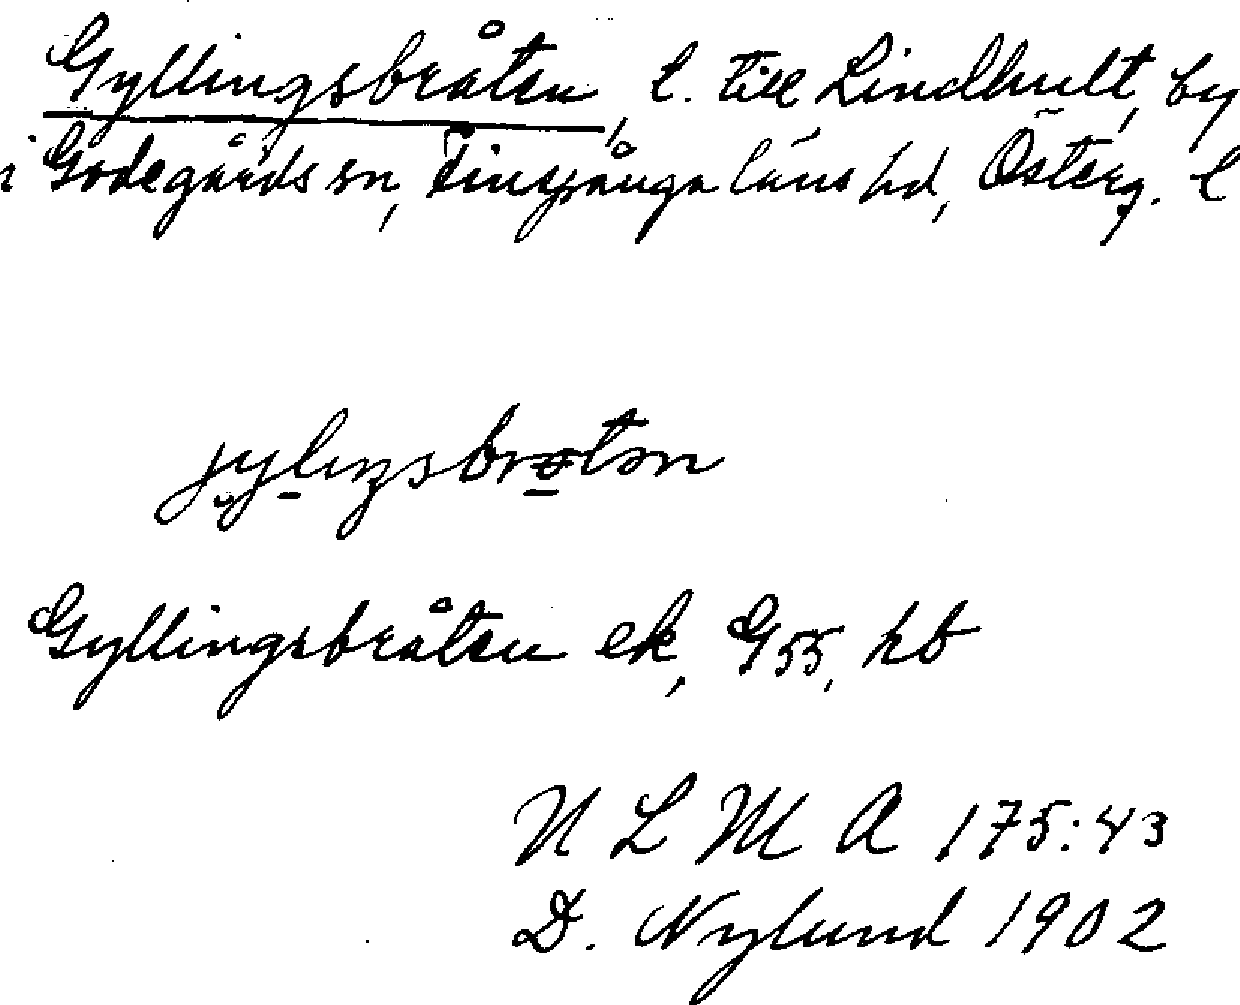 Gyllingsbråten, l. till Lindhult, by
i Godegårds sn, Finspånga läns hd, Österg. l
Gyllingsbråten ek, G55, hb
N L M A 175:43
D. Nylund 1902